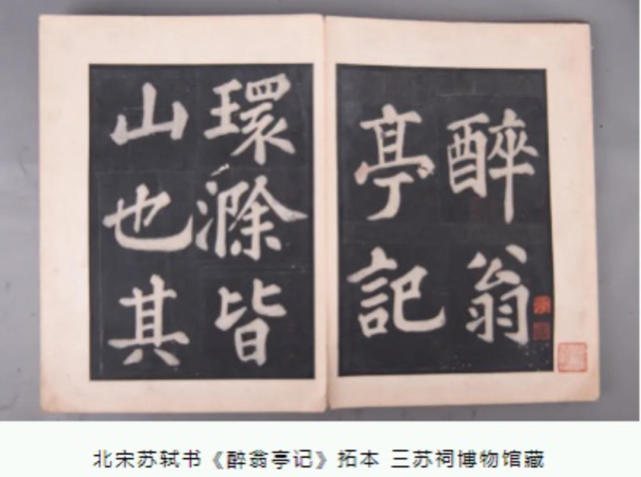 醉翁
亭記
環滁皆
山也其
北宋苏轼书《醉翁亭记》拓本 三苏祠博物馆藏